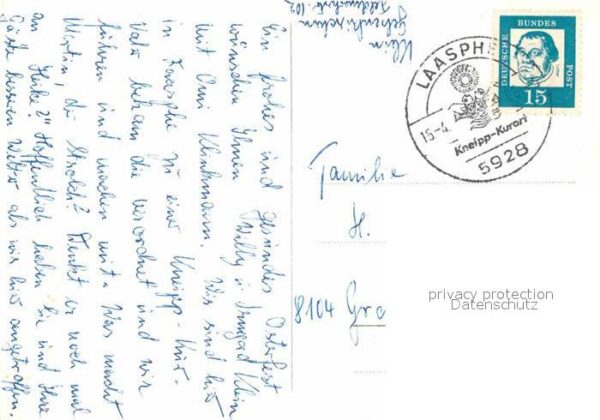 Ein frohes und gesundes Osterfest
wünschen Ihnen Willy u. Irmgad Klein
mit Omi Klinkmann. Wir sind hier
in Laasphe zu einer Kneipp-Kur.
Vati bekam die verordnet und wir
führen und machen mit. Was macht
Martin, der Strolch? Denkt er noch mal
an Heike?" Hoffentlich haben Sie und Ihre
Gäste besseres Wetter als wir hier angetroffen.
Klein
Gelsenkirchen
102
Familie
H.
8104 Gra
LAASPHE
15.-4.
Kneipp-Kurort
5928
DEUTSCHE BUNDES POST
15
privacy protection
Datenschutz